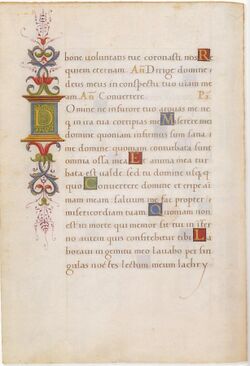 bone uoluntatis tue coronasti nos. Re
quiem eternam. Añ Dirige domine
deus meus in conspectu tuo uiam me
am. Añ Conuertere. Ps.
Domine ne infurore tuo arguas me ne
q in ira tua corripias me Miserere mei
domine quoniam infirmus sum sana
me domine quoniam conturbata sunt
omnia ossa mea Et anima mea tur
bata est ualde sed tu domine usq
quo Conuertere domine et eripe ai
mam meam saluum me fac propter
misericordiam tuam Quoniam non
est in morte qui memor sit tui in ifer
no autem quis confitebitur tibi La
boraui in gemitu meo lauabo per sin
gulas noctes lectum meum lachry